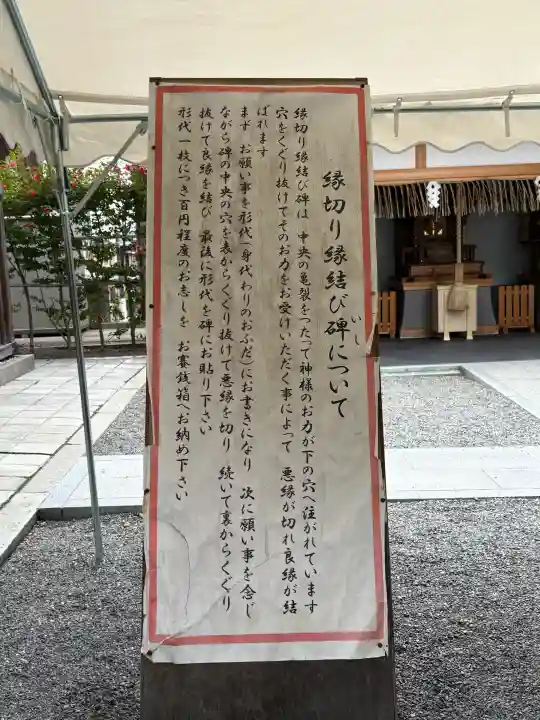 縁切り縁結び碑について
いし
縁切り縁結び碑は、中央の亀裂をつたって神様のお力が下の穴へ注がれています
穴をくぐり抜けてそのお力をお受けいただく事によって 悪縁が切れ良縁が結
ばれます
まず お願い事を形代(身代わりのおふだ)にお書きになり 次に願い事を念じ
ながら碑の中央の穴を表からくぐり抜けて悪縁を切り 続いて裏からくぐり
抜けて良縁を結び 最後に形代を碑にお貼り下さい
形代一枚につき百円程度のお志しを お賽銭箱へお納め下さい